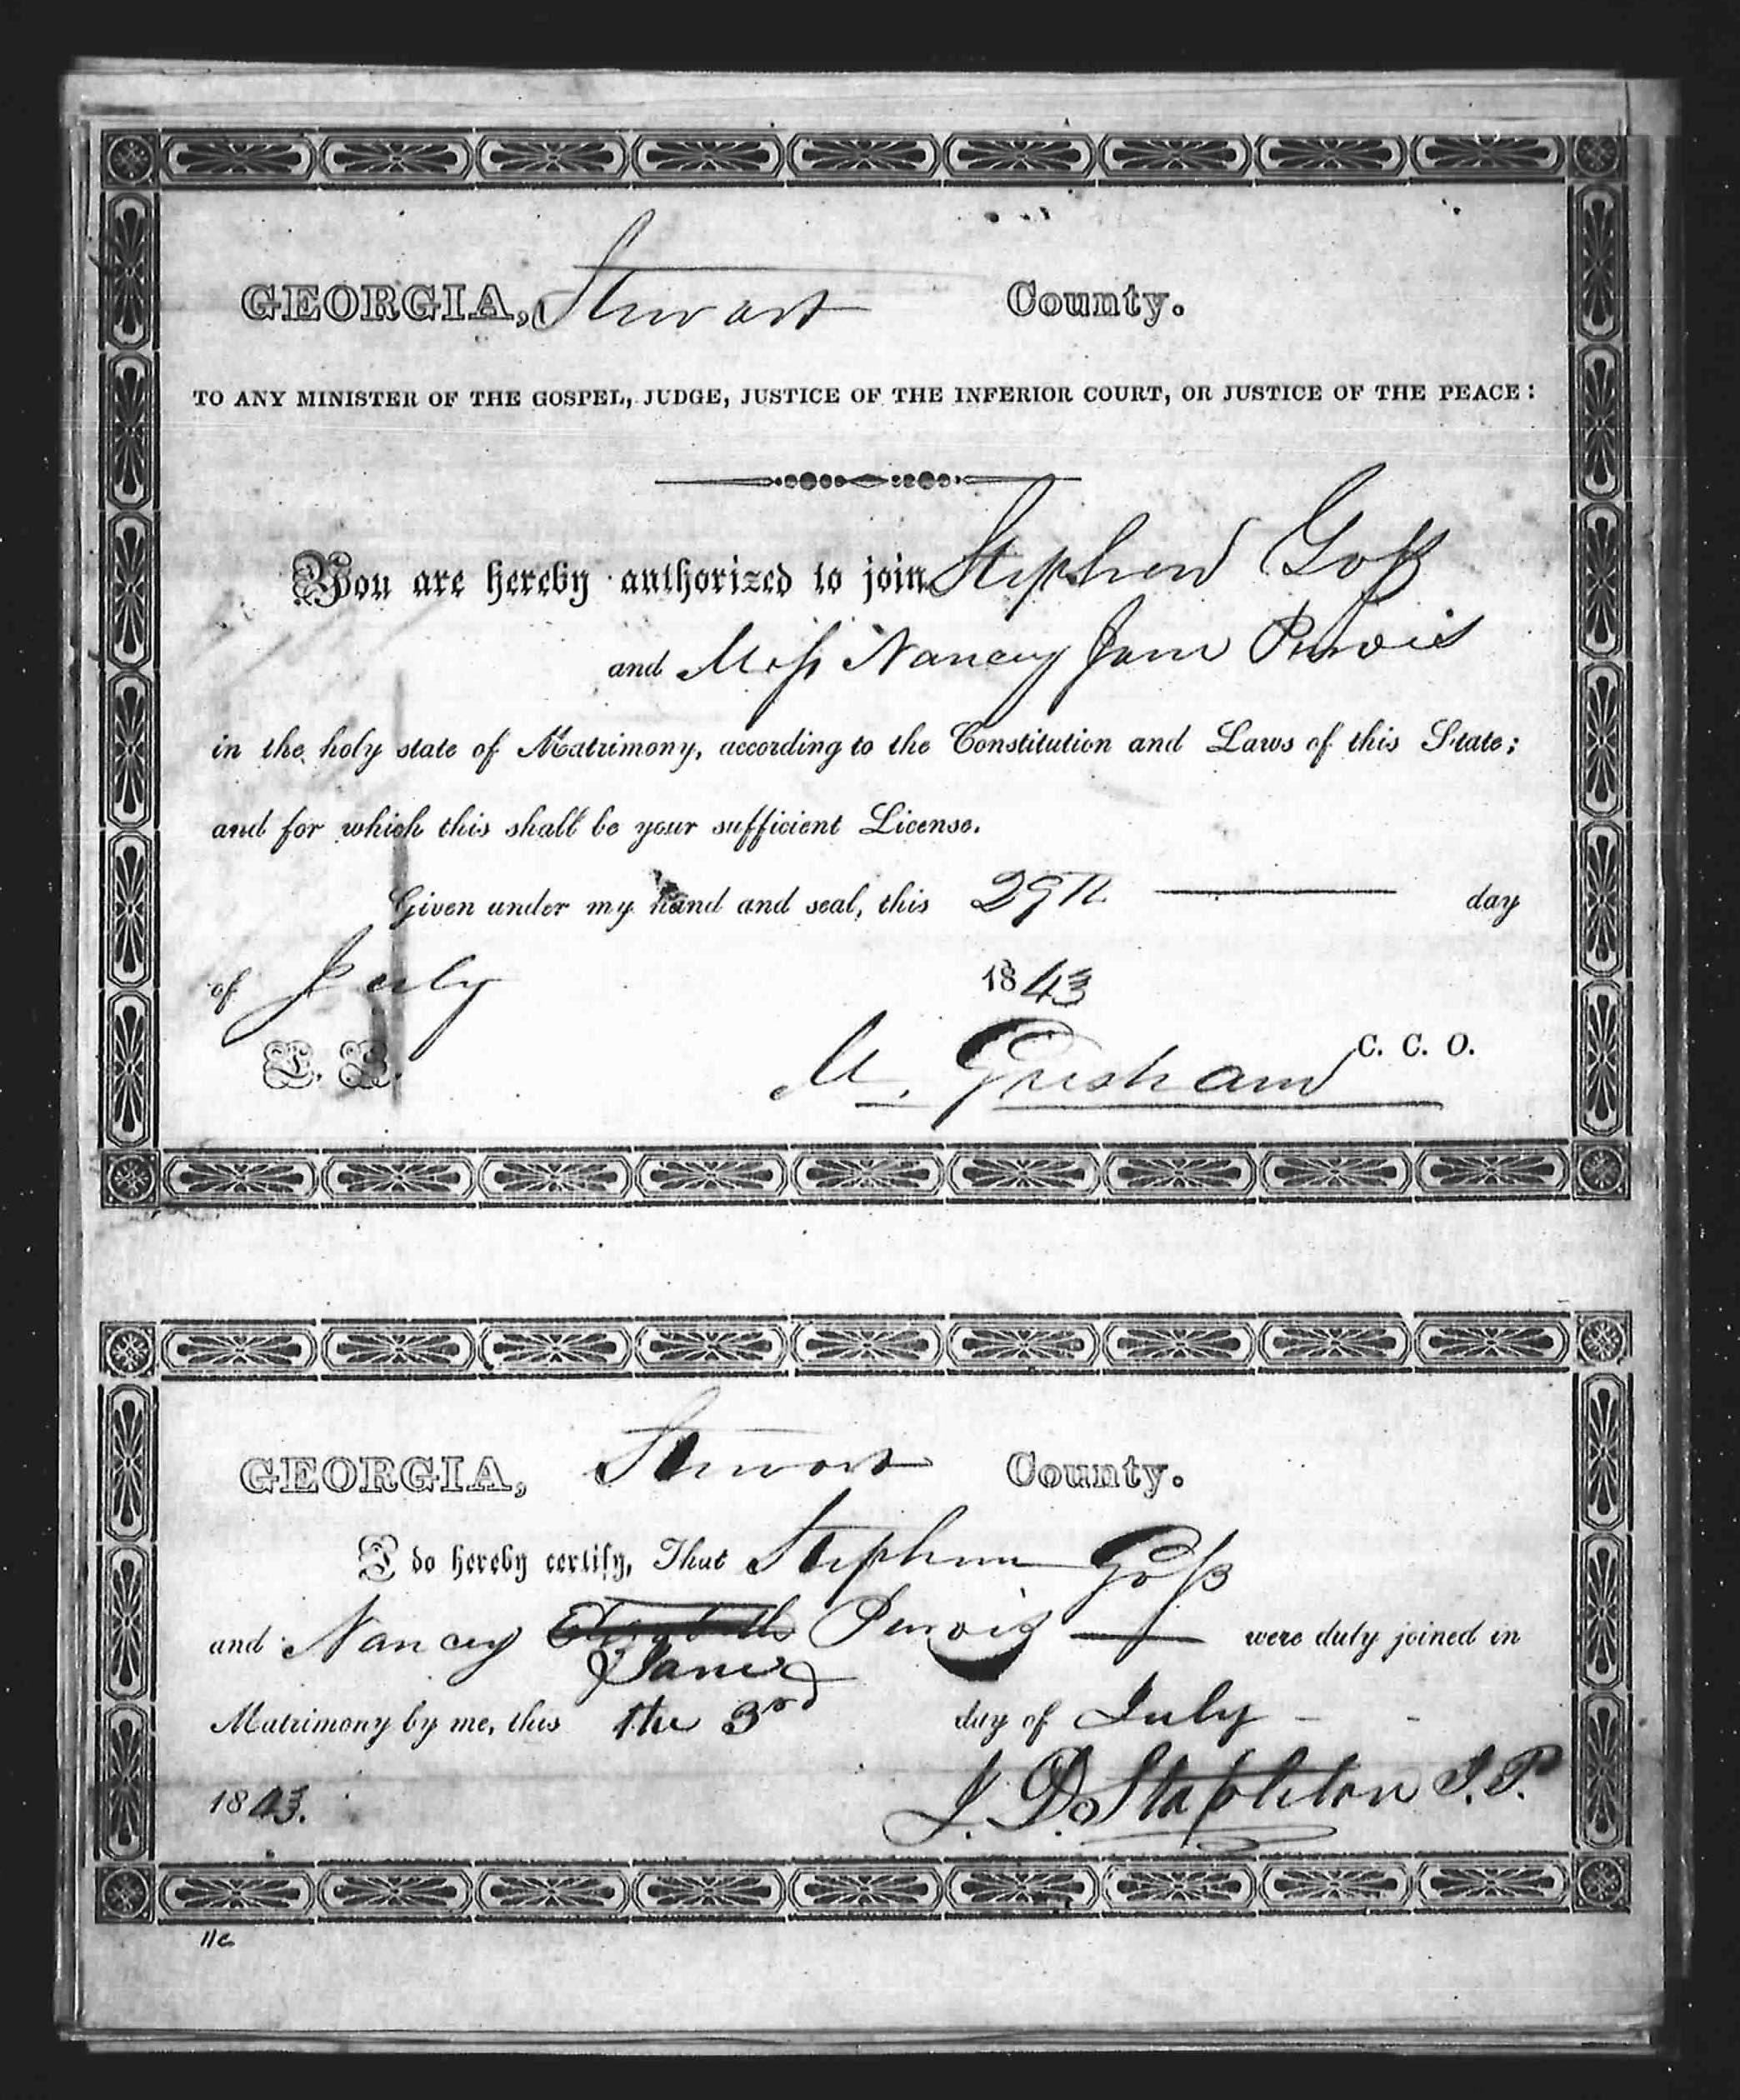 GEORGIA, Stewart County.
TO ANY MINISTER OF THE GOSPEL, JUDGE, JUSTICE OF THE INFERIOR COURT, OR JUSTICE OF THE PEACE:
You are hereby authorized to join Stephen Goſs
and Miſs Nancy Jane Purvis
in the holy state of Matrimony, according to the Constitution and Laws of this State;
and for which this shall be your sufficient License.
Given under my hand and seal, this 29th day
of July 1843
L. S. M. Gresham C. C. O.
GEORGIA, Stewart County.
I do hereby certify, That Stephen Goſs
and Nancy Elizabeth Purvis were duly joined in
Jane
Matrimony by me, this the 3rd day of July
1843. J. D. Stapleton J. P.